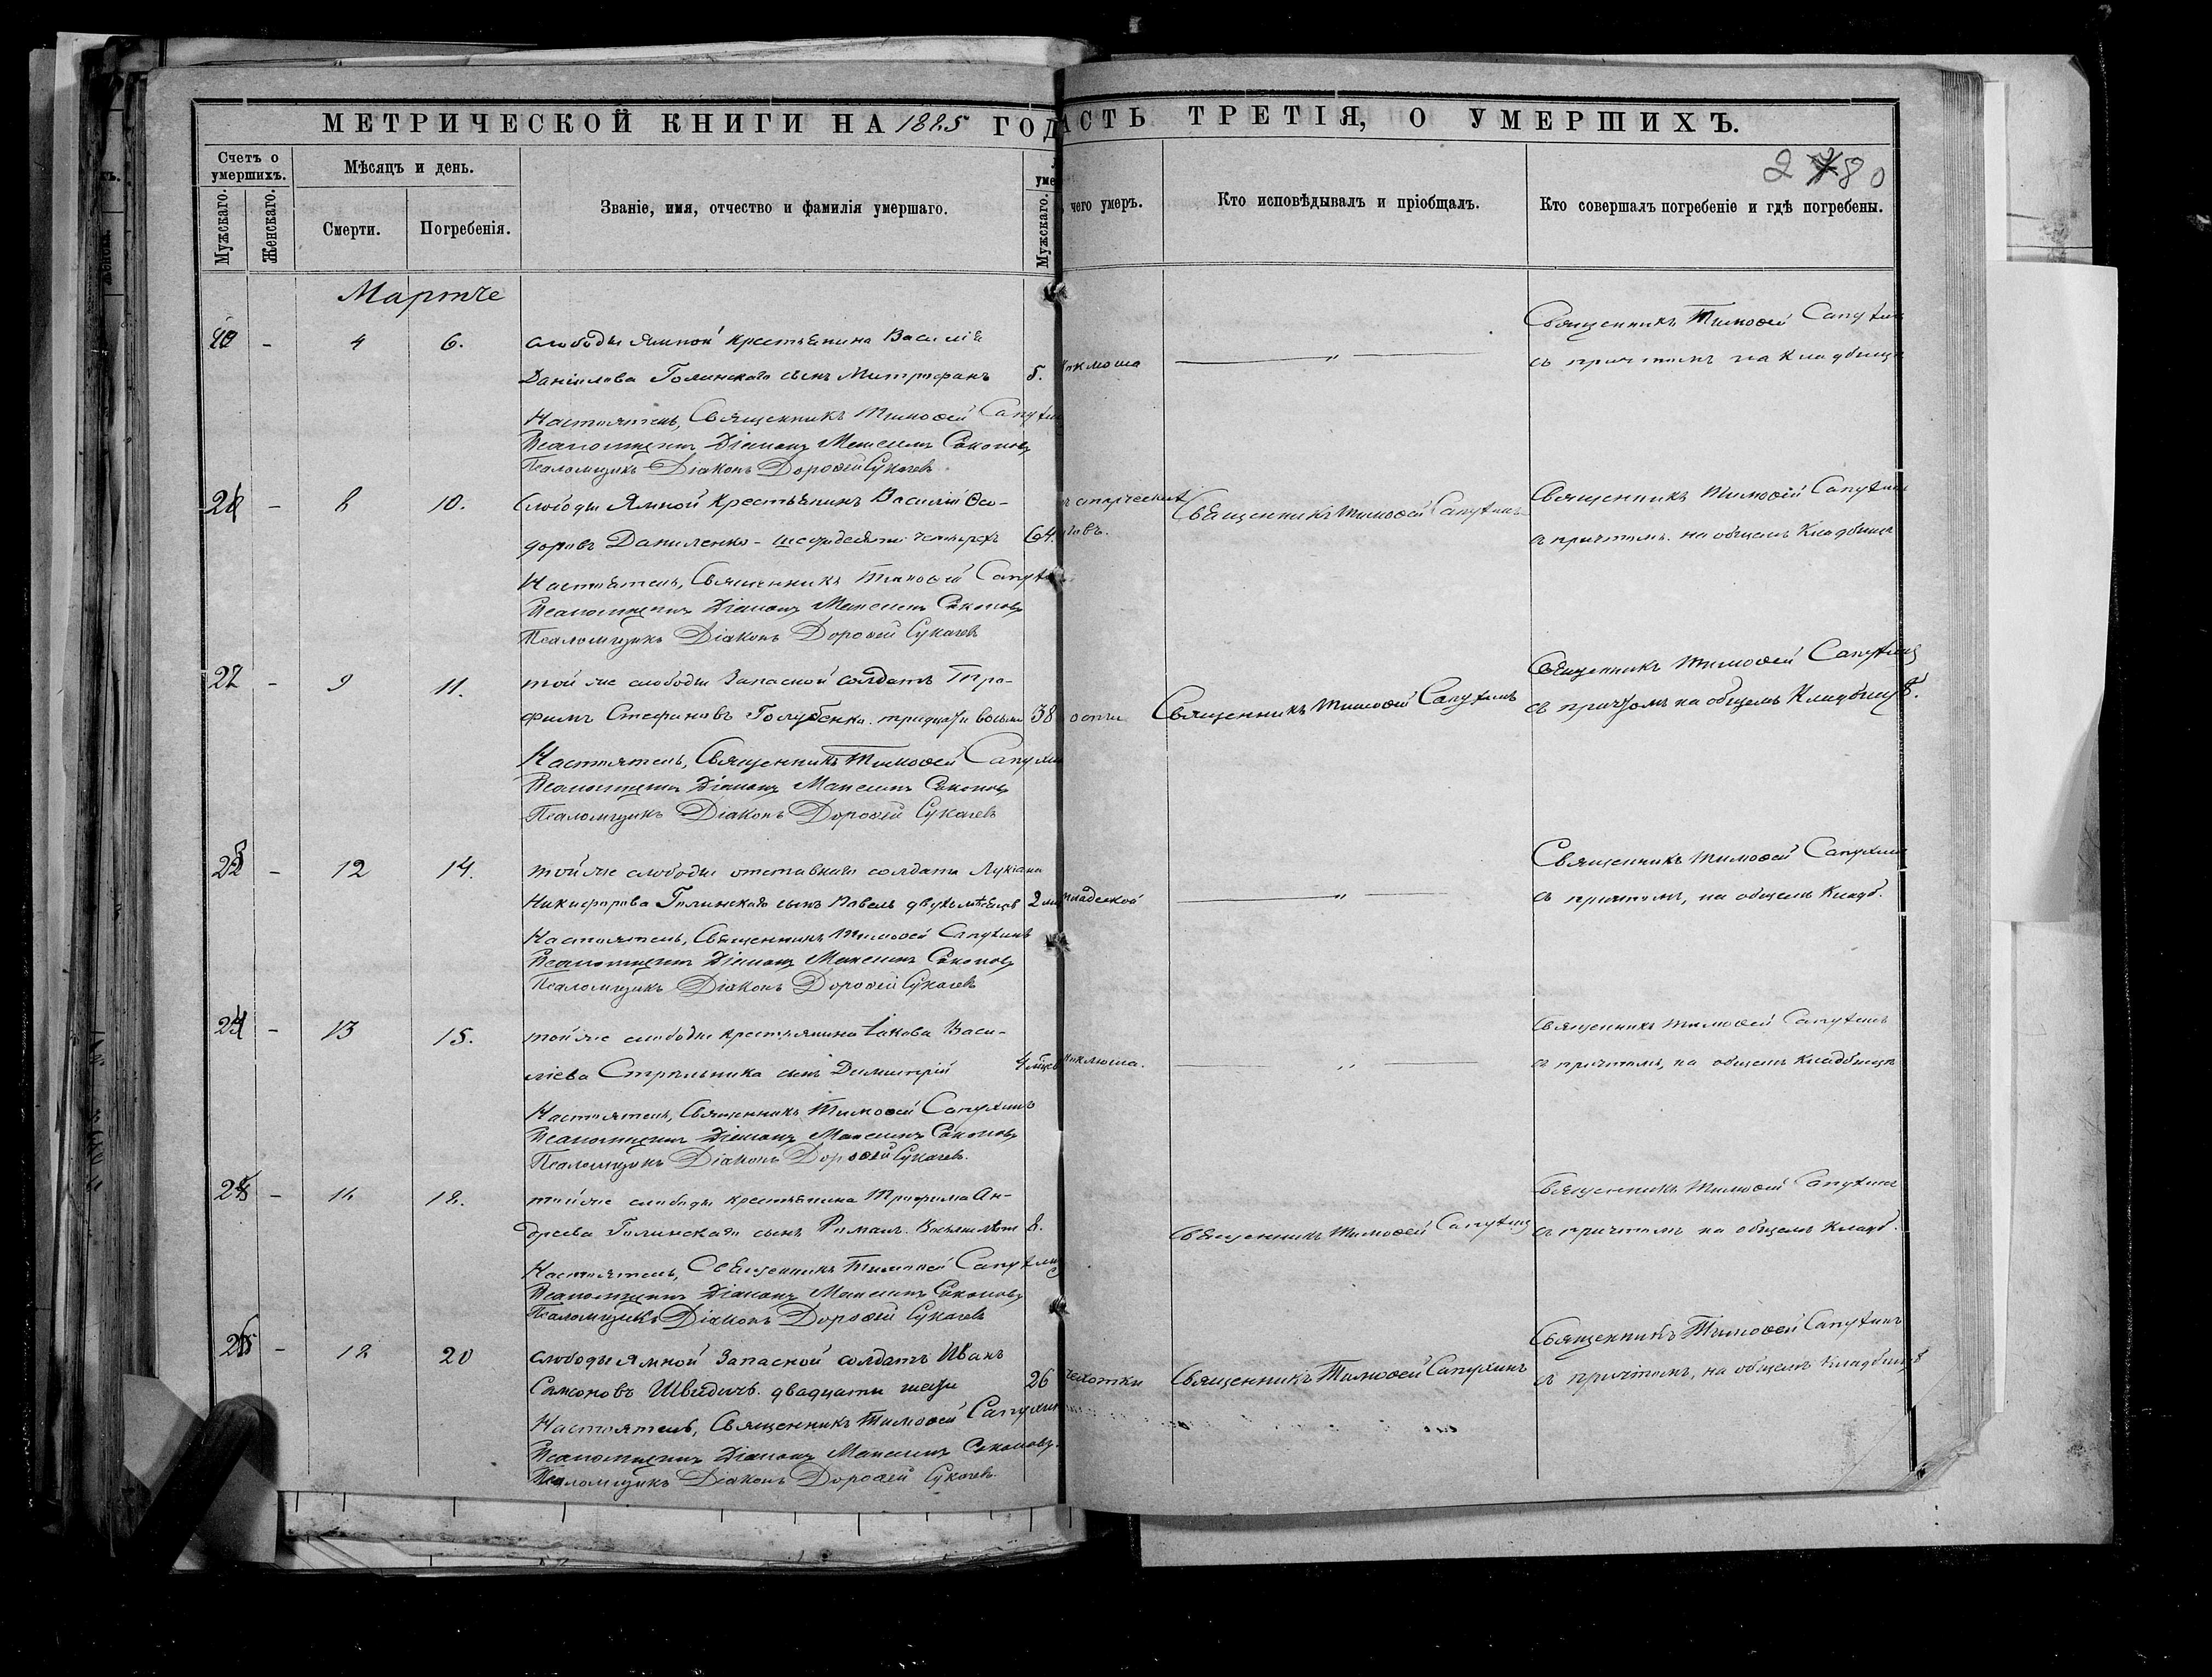 МЕТРИЧЕСКОЙ КНИГИ НА 1885 ГОД
АСТЬ ТРЕТІЯ, О УМЕРШИХЪ.
280
Счетъ о умершихъ.
Мѣсяцъ и день.
Званіе, имя, отчество и фамилія умершаго.
уме
чего умеръ.
Кто исповѣдывалъ и пріобщалъ.
Кто совершалъ погребеніе и гдѣ погребены.
Мужскаго.
Женскаго.
Смерти.
Погребенія.
Мужскаго.
Мартъ
Священникъ Тимоѳей Сапухин
4 6. слободы Ямной крестьянина Василія
съ причтомъ на кладбищѣ
Даніилова Голинскаго сынъ Митрофанъ 5. коклюша
Настоятель, Священникъ Тимоѳей Сапухин
Псаломщикъ Діаконъ
Псаломщикъ Діаконъ Дороѳей Сукачевъ
21 - 8 10. Слободы Ямной крестьянинъ Василій Ѳео-
Священникъ Тимоѳей Сапухинъ
Священникъ Тимоѳей Сапухинъ
доровъ Даниленко - шестидесяти четырехъ 64.
съ причтомъ на общемъ кладбищѣ
Настоятель, Священникъ Тимоѳей Сапухин
Псаломщикъ Діаконъ
Псаломщикъ Діаконъ Дороѳей Сукачевъ
22 - 9 11. той же слободы запасной солдатъ Тро-
Священникъ Тимоѳей Сапухинъ
фимъ Стефановъ Голубенко. тридцати восьми 38
Священникъ Тимоѳей Сапухинъ
съ причтомъ на общемъ кладбищѣ.
Настоятель, Священникъ Тимоѳей Сапухин
Псаломщикъ Діаконъ
Псаломщикъ Діаконъ Дороѳей Сукачевъ
23 - 12 14. той же слободы отставнаго солдата Лукіана
Священникъ Тимоѳей Сапухинъ
Никифорова Голинскаго сынъ Павелъ двухъ мѣсяцев 2 младенской
съ причтомъ, на общемъ кладб.
Настоятель, Священникъ Тимоѳей Сапухинъ
Псаломщикъ Діаконъ
Псаломщикъ Діаконъ Дороѳей Сукачевъ
24 - 13 15. той же слободы крестьянина Іакова Васи-
Священникъ Тимоѳей Сапухинъ
ліева Стрельника сынъ Димитрій 4 мѣсев коклюша.
съ причтомъ, на общемъ кладбищѣ
Настоятель, Священникъ Тимоѳей Сапухинъ
Псаломщикъ Діаконъ
Псаломщикъ Діаконъ Дороѳей Сукачевъ.
25 - 16 18. той же слободы крестьянина Трофима Ан-
Священникъ Тимоѳей Сапухинъ
дреева Голинскаго сынъ Романъ. Восьми лѣт 8.
Священникъ Тимоѳей Сапухинъ
съ причтомъ на общемъ кладб.
Настоятель, Священникъ Тимоѳей Сапухин
Псаломщикъ Діаконъ
Псаломщикъ Діаконъ Дороѳей Сукачевъ
26 - 18 20 слободы Ямной запасной солдатъ Иванъ
Священникъ Тимоѳей Сапухинъ
Самсоновъ Швидичъ. двадцати шести 26 чахотки
Священникъ Тимоѳей Сапухинъ
съ причтомъ, на общемъ кладбищѣ
Настоятель, Священникъ Тимоѳей Сапухин
Псаломщикъ Діаконъ
Псаломщикъ Діаконъ Дороѳей Сукачевъ.